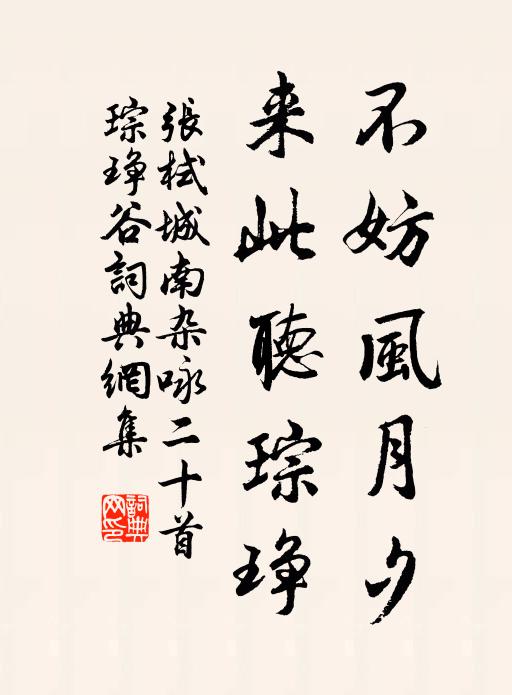 不妨風月夕
来此聽琮琤
張栻城南杂咏二十首
琮琤谷詞典網集
詞典網印